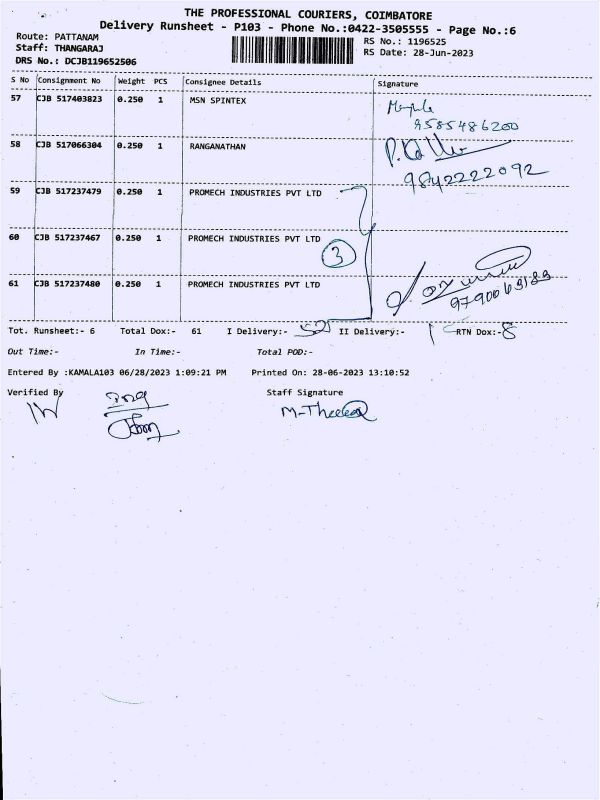 THE PROFESSIONAL COURIERS, COIMBATORE
Delivery Runsheet - P103 - Phone No.:0422-3505555 - Page No.:6
Route: PATTANAM
RS No.: 1196525
Staff: THANGARAJ
RS Date: 28-Jun-2023
DRS No.: DCJB119652506
S No Consignment No Weight PCS Consignee Details Signature
57 CJB 517403823 0.250 1 MSN SPINTEX
9585486200
58 CJB 517066304 0.250 1 RANGANATHAN
9842222092
59 CJB 517237479 0.250 1 PROMECH INDUSTRIES PVT LTD
60 CJB 517237467 0.250 1 PROMECH INDUSTRIES PVT LTD
3
61 CJB 517237480 0.250 1 PROMECH INDUSTRIES PVT LTD
Tot. Runsheet:- 6 Total Dox:- 61 I Delivery:- II Delivery:- RTN Dox:- 8
Out Time:- In Time:- Total POD:-
Entered By :KAMALA103 06/28/2023 1:09:21 PM Printed On: 28-06-2023 13:10:52
Verified By Staff Signature